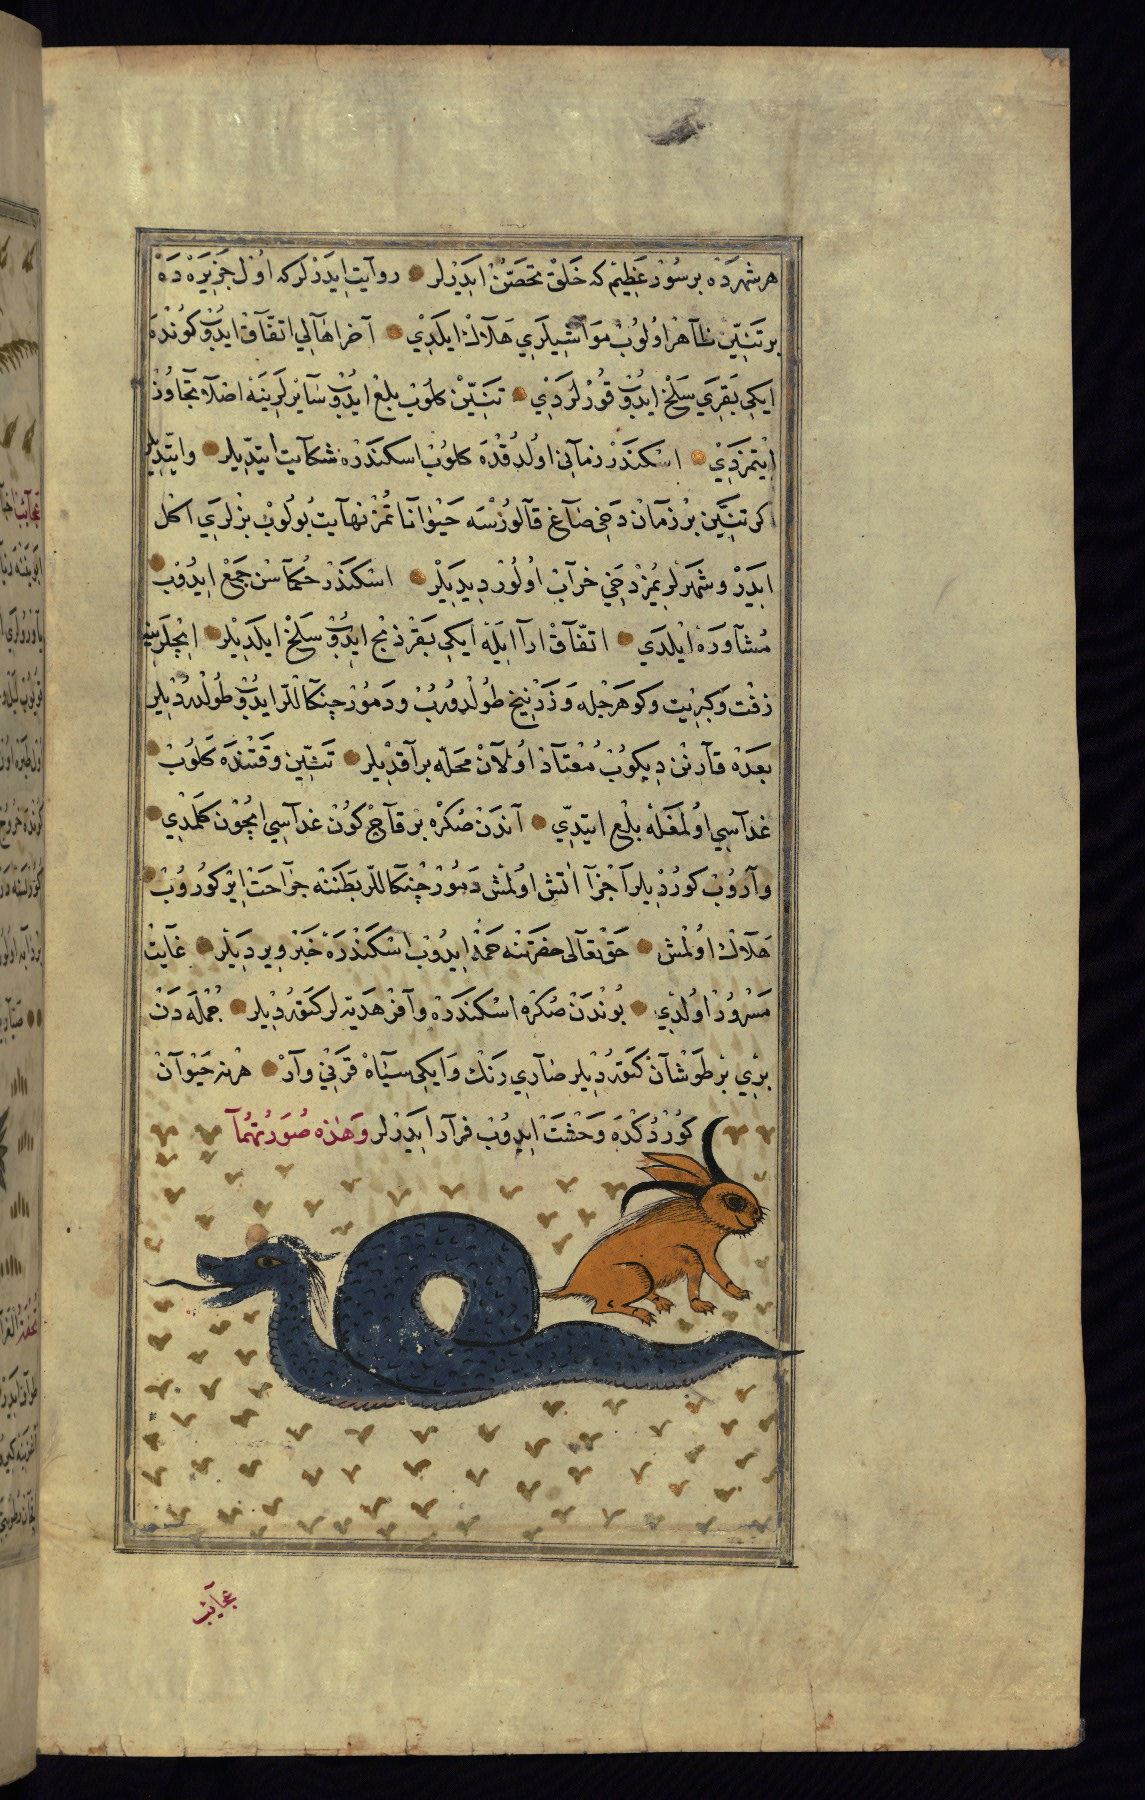 هر شهرده بر سور عظيم كه خلق تحصّن ايدرلر روايت ايدرلر كه اول جزيره ده
بر تنّين ظاهر اولوب مواشيلري هلاك ايلدي آخر اهالي اتّفاق ايدوب كونده
ايكي بقري سلخ ايدوب قورلردي تنّين كلوب بلع ايدوب سايرلرينه اصلا تجاوز
ايتمزدي اسكندر زماني اولدقده كلوب اسكندره شكايت ايتديلر وايتديلر
كر تنّين بر زمان دخي صاغ قالورسه حيوانا تمز نهايت بولوب بزلري اكل
ايدر وشهرلريمز دخي خراب اولور ديديلر اسكندر حكماسن جمع ايدوب
مشاوره ايلدي اتّفاق ارا ايله ايكي بقر ذبح ايدوب سلخ ايلديلر ايچلرينه
زفت وكبريت وكوهرجله وزرنيخ طولدوروب ودمور چنكاللر ايدوب طولدرديلر
بعده قارنن ديكوب معتاد اولان محلّه براقديلر تنّين وقتنده كلوب
غداسي اولمغله بلع ايتدي آندن صكره بر قاچ كون غداسي ايچون كلمدي
واروب كورديلر اجزا اتش اولمش دمور چنكاللر بطننه جراحت اير كوروب
هلاك اولمش حق تعالى حضرتنه حمد ايدوب اسكندره خبر ويرديلر غايت
مسرور اولدي بوندن صكره اسكندره وافر هديه لر كتورديلر جمله دن
بري بر طوشان كتورديلر صاري رنك وايكي سياه قرني وار هر نه حيوان
كوردكده وحشت ايدوب فرار ايدرلر وهذه صورتهما
عجايب